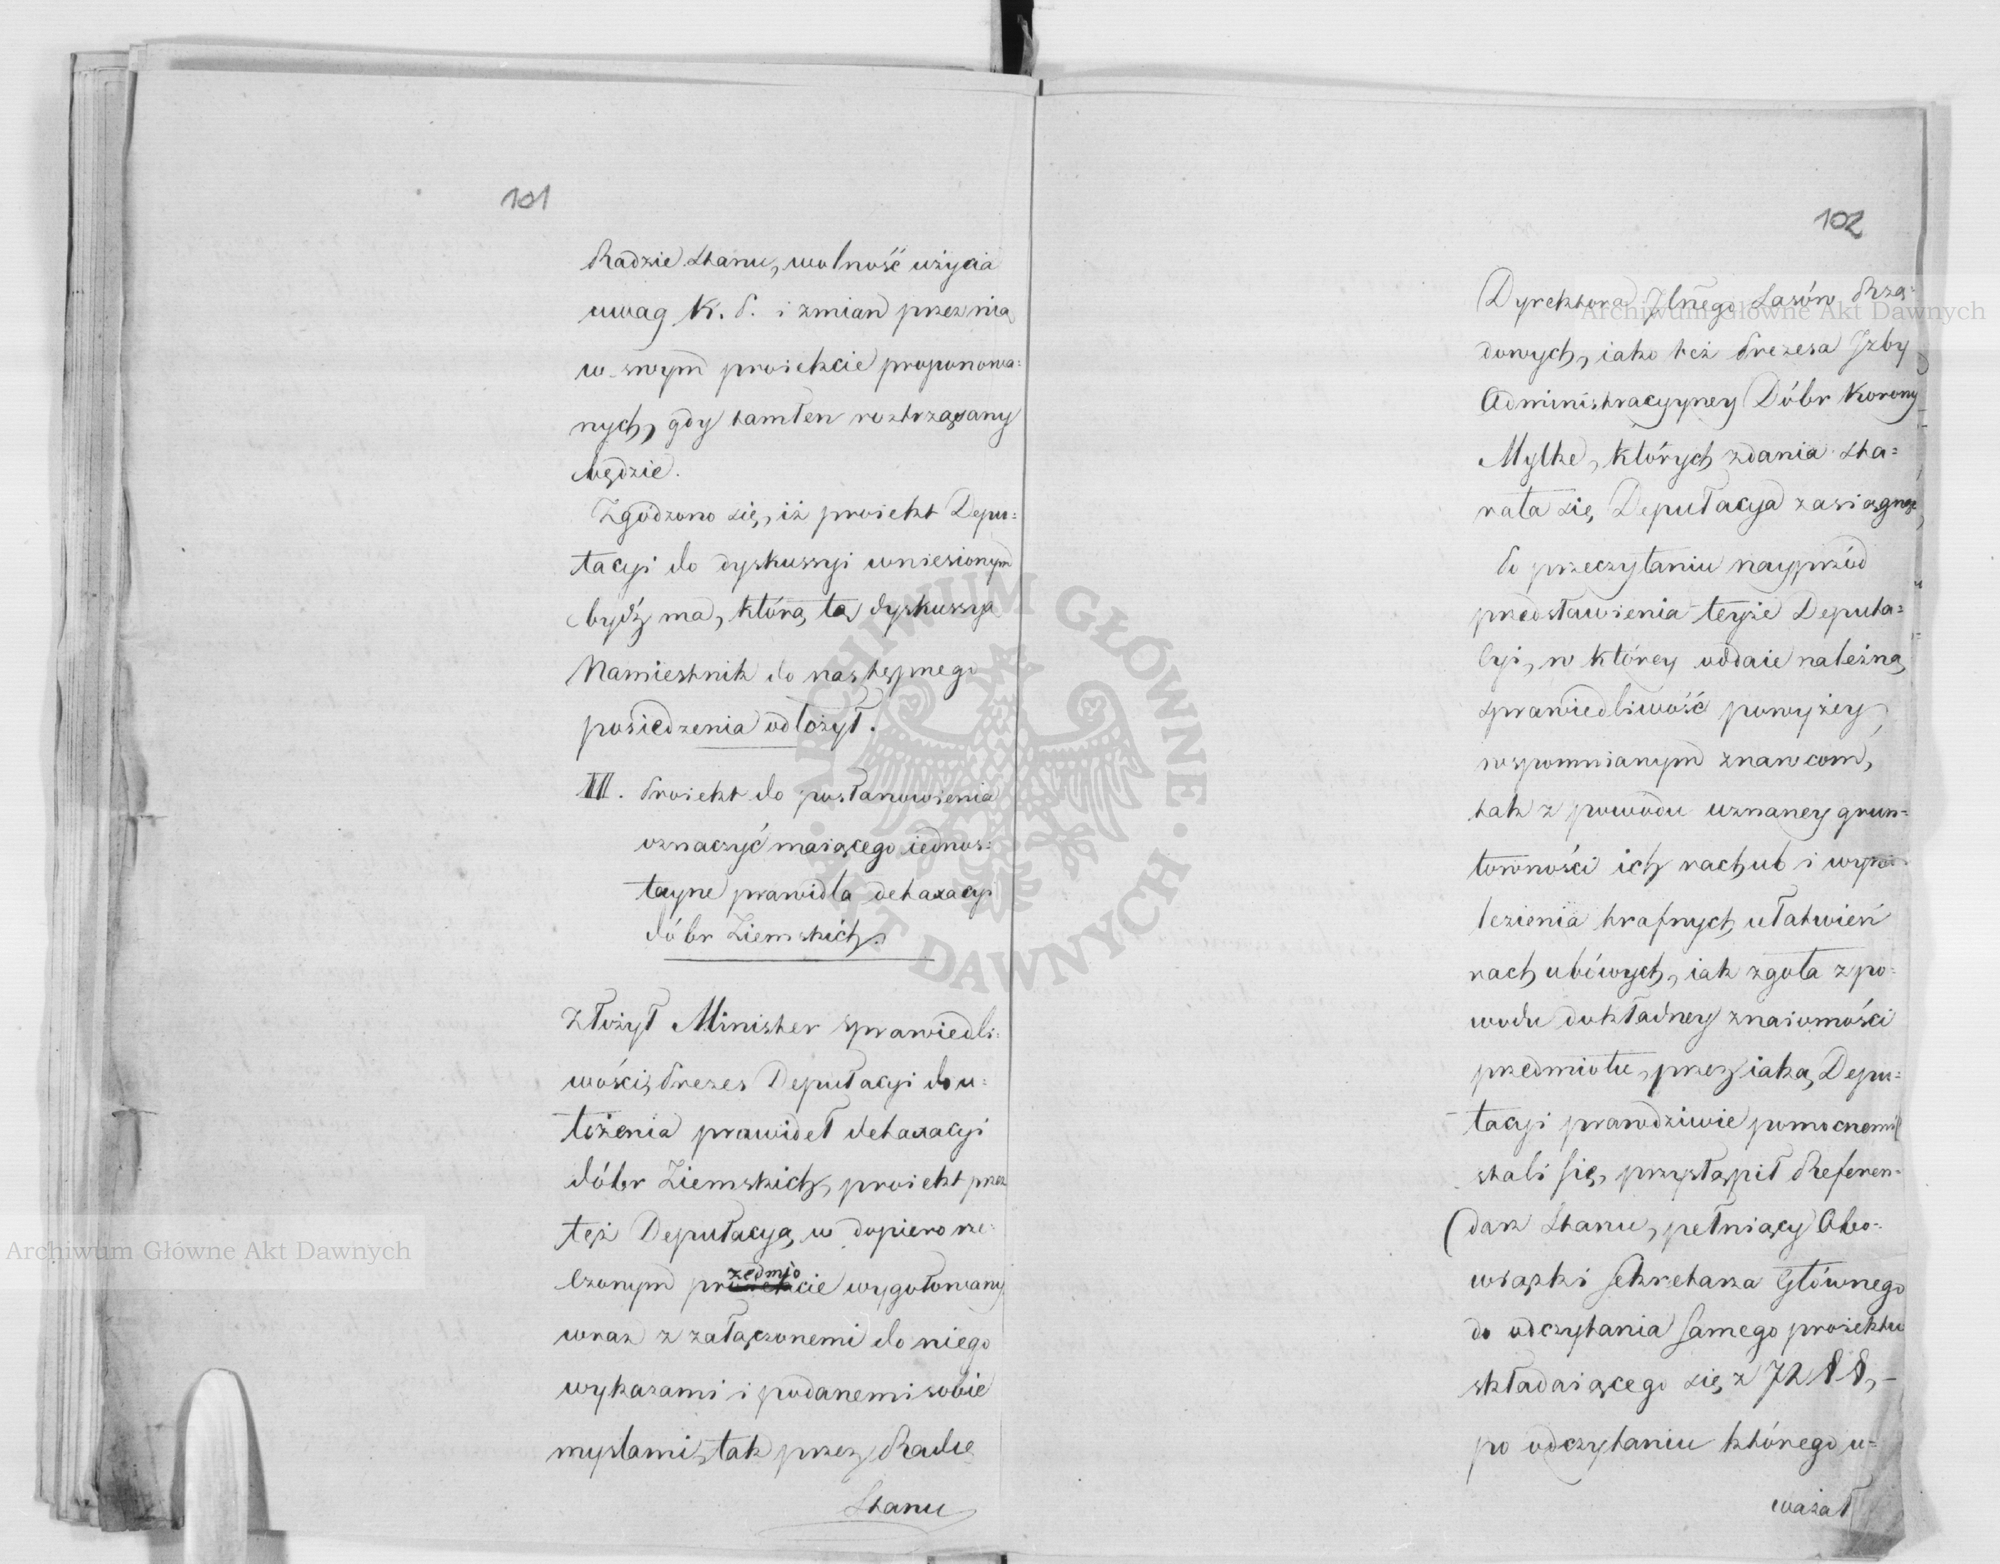 101
Radzie Stanu, wolność użycia
uwag K. P. i zmian przez nią
w swym proiekcie proponowa=
nych, gdy tamten roztrząsany
będzie.
Zgodzono się, iż proiekt Depu=
tacyi do dyskussyi wniesionym
bydź ma, którą tą dyskussyą
Namiestnik do następnego
posiedzenia odłożył.
III. Proiekt do postanowienia
oznaczyć maiącego iednos=
tayne prawidła detaxacyi
dóbr Ziemskich.
Złożył Minister sprawiedli=
wości, Prezes Deputacyi do u=
łożenia prawideł detaxacyi
dóbr Ziemskich, proiekt przez
też Deputacyą, w dopiero rze=
czonym przedmiocie wygotowany
wraz z załączonemi do niego
wykazami i podanemi sobie
myslami, tak przez Radcę
Stanu
102
Dyrektora Jlnego Lasów Rzą=
dowych, iako też Prezesa Jzby
Administracyyney Dóbr Korony
Mylke, których zdania sta=
rała się Deputacya zasiągnąć,
Po przeczytaniu nayprzód
przedstawienia teyże Deputa=
cyi, w którey oddaie należną
sprawiedliwość powyżey
wspomnianym znawcom,
tak z powodu uznaney grun=
towności ich rachub i wyna=
lezienia trafnych ułatwień
rachubowych, iak zgoła z po=
wodu dokładney znaiomości
przedmiotu, przez iaką Depu=
tacyi prawdziwie pomocnemi
stali się, przystąpił Referen=
darz Stanu, pełniący Obo=
wiązki Sekretarza Głównego
do odczytania samego proiektu
składaiącego się z 72 §§, –
po odczytaniu którego u=
ważał
Archiwum Główne Akt Dawnych
Archiwum Główne Akt Dawnych
ARCHIWUM GŁÓWNE · AKT DAWNYCH ·